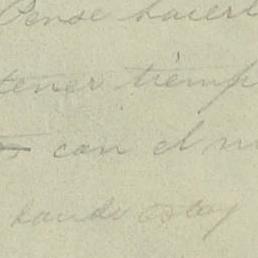 Pense hacerl
tener tiemp
con el m
estoy